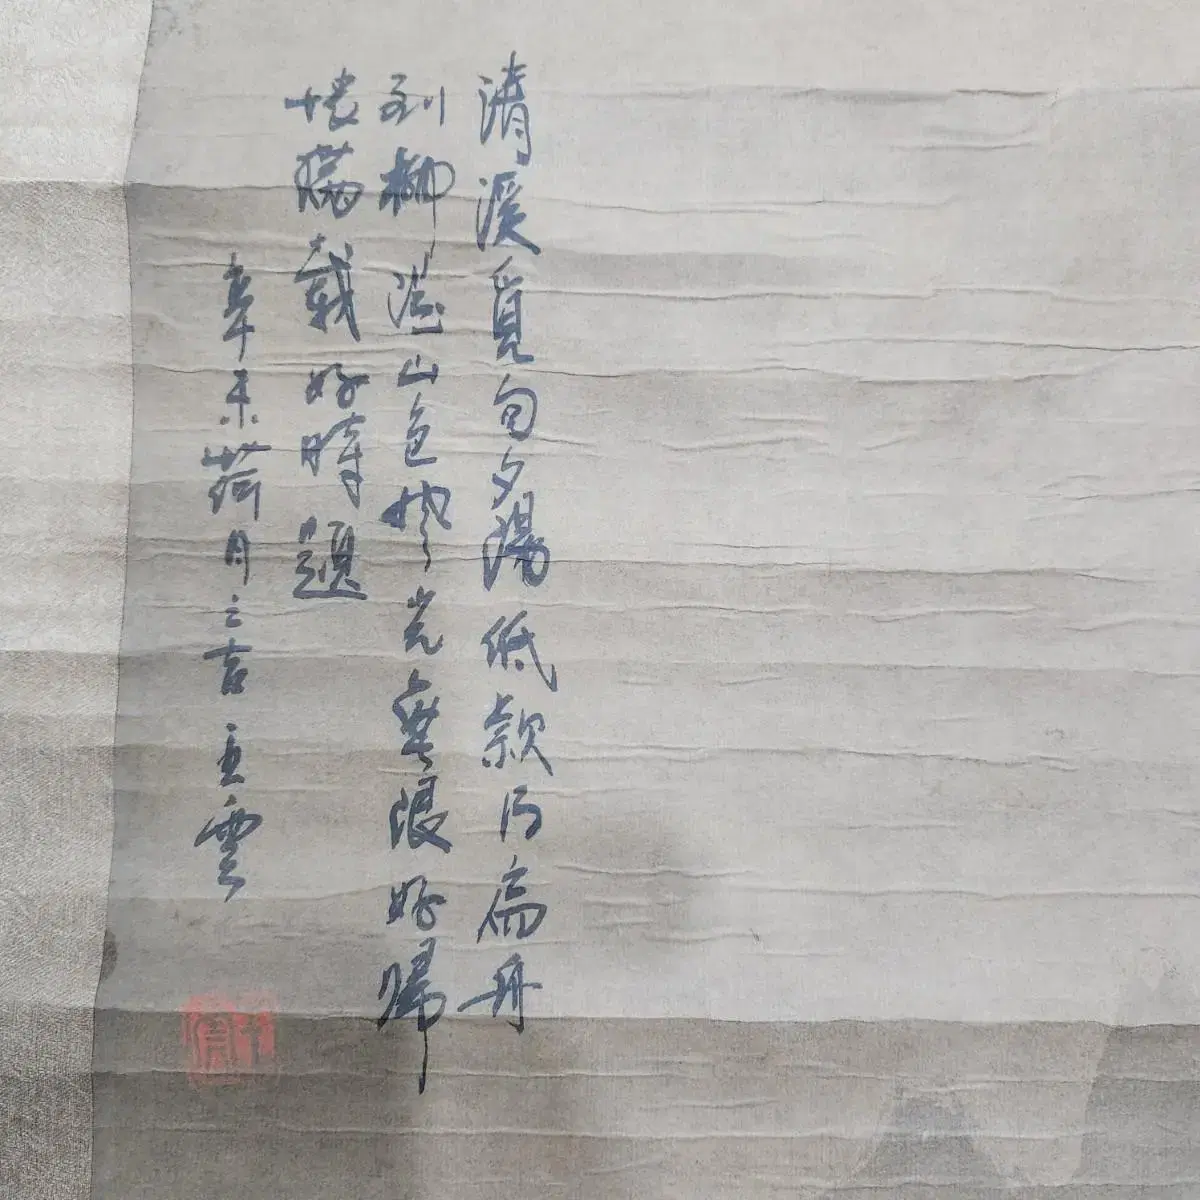 清溪覓句夕陽低款乃扁舟
到柳隄山色㶷光無限好歸
懷猶載好時題
辛未荷月之吉王雲